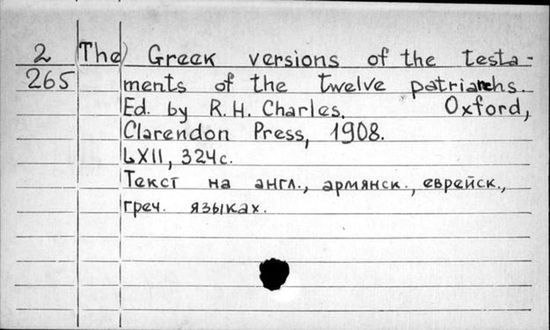 2 The Greek versions of the testa-
265 ments of the twelve patriarchs.
Ed. by R.H. Charles. Oxford,
Clarendon Press, 1908.
LXII, 324с.
Текст на англ., армянск., еврейск.,
греч. языках.